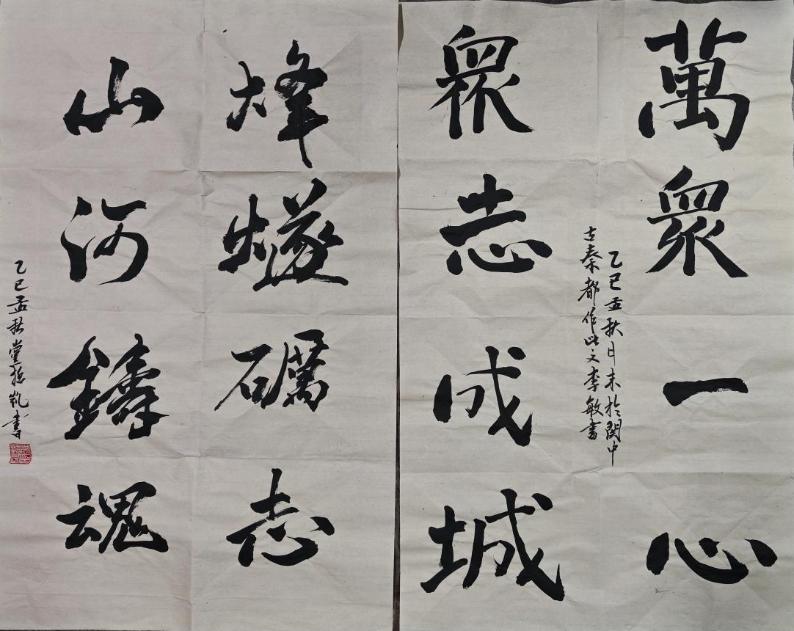 萬眾一心
眾志成城
乙巳孟秋月末於関中
古秦都作此文李敏書
烽燧礪志
山河鑄魂
乙巳孟秋党延凱書